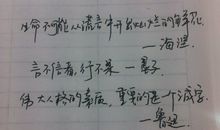 生命不可能从谎言中开出灿烂的鲜花
—海涅
言不信者,行不果 —墨子
伟大人格的素质,重要的是一个诚字。
—鲁迅